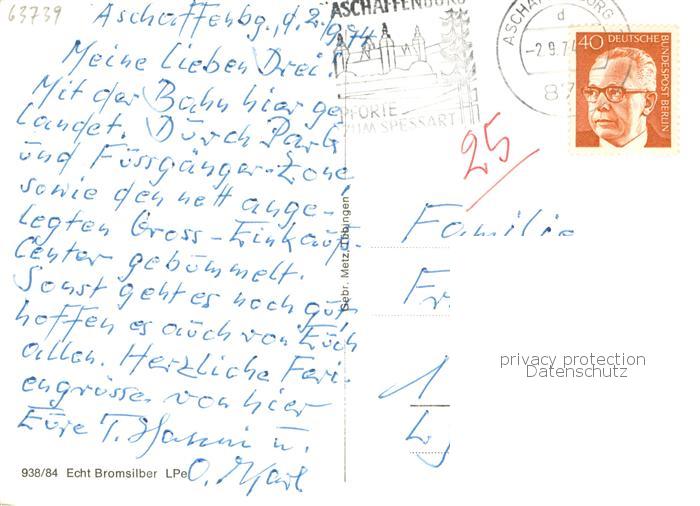 63739
Aschaffenbg., d. 2.
9.74
Meine lieben Drei!
Mit der Bahn hier ge-
landet. Durch Park
und Fussgänger-Zone
sowie den nett ange-
legten Gross-Einkaufs-
Center gebummelt.
Sonst geht es noch gut,
hoffen es auch von Euch
allen. Herzliche Feri-
engrüsse von hier
Eure T. Hanni u.
O. Karl
938/84 Echt Bromsilber LPe
Gebr. Metz, Tübingen
ASCHAFFENBURG
PFORTE
ZUM SPESSART
ASCHAFFENBURG
d
-2.9.74
87
40 DEUTSCHE
BUNDESPOST BERLIN
25
Familie
Fr
1
privacy protection
Datenschutz